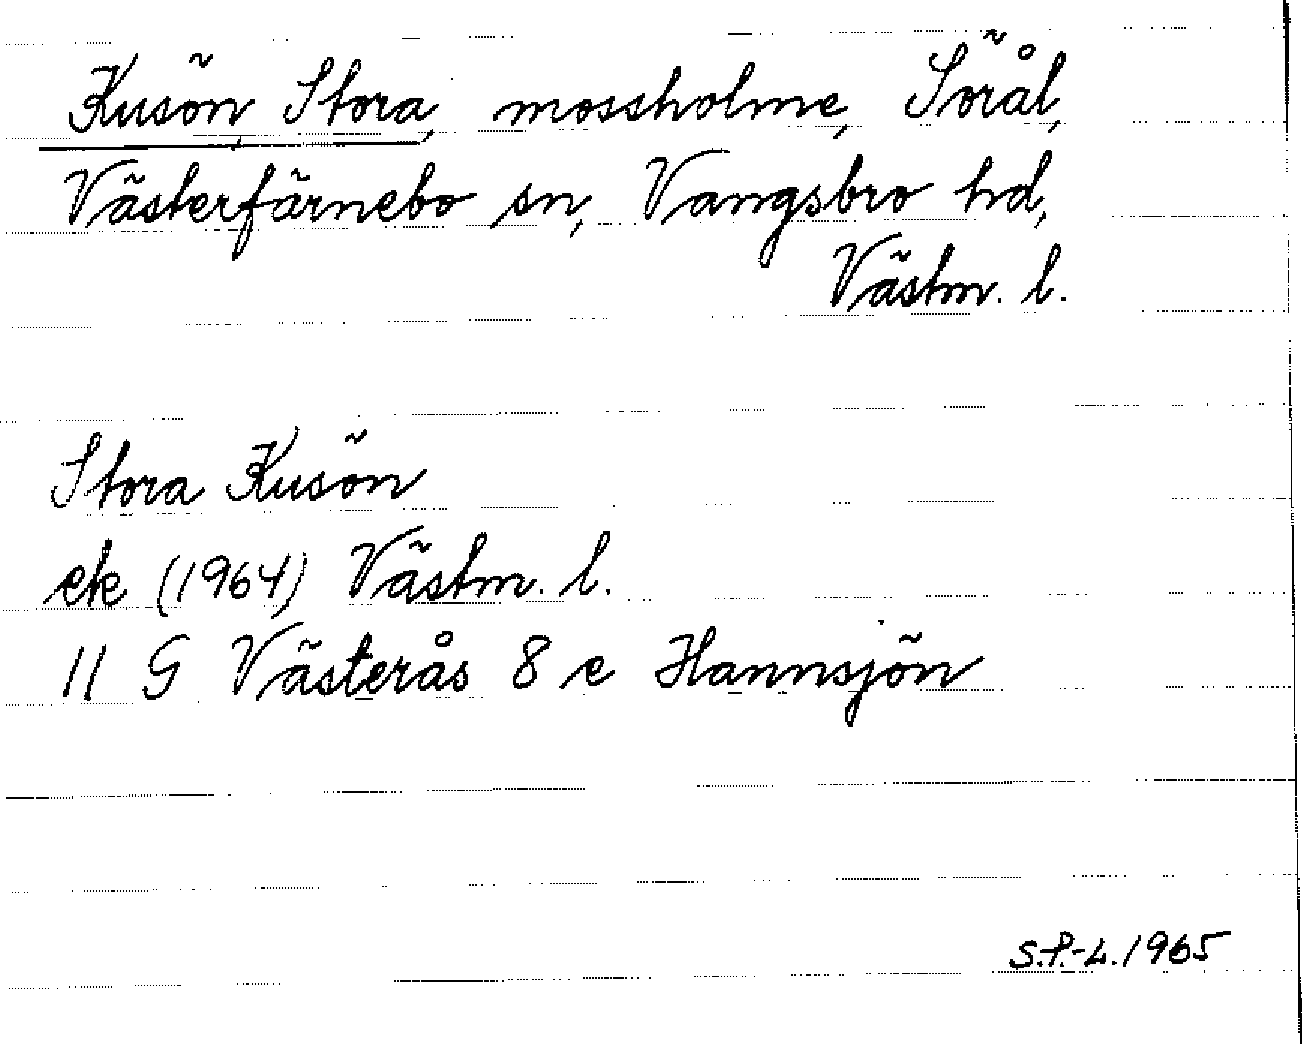 Kusön, Stora, mossholme, Sörål,
Västerfärnebo sn, Vangsbro hd,
Västm. l.
Stora Kusön
ek (1964) Västm. l.
11 G Västerås 8 e Hannsjön
S.P.-L. 1965